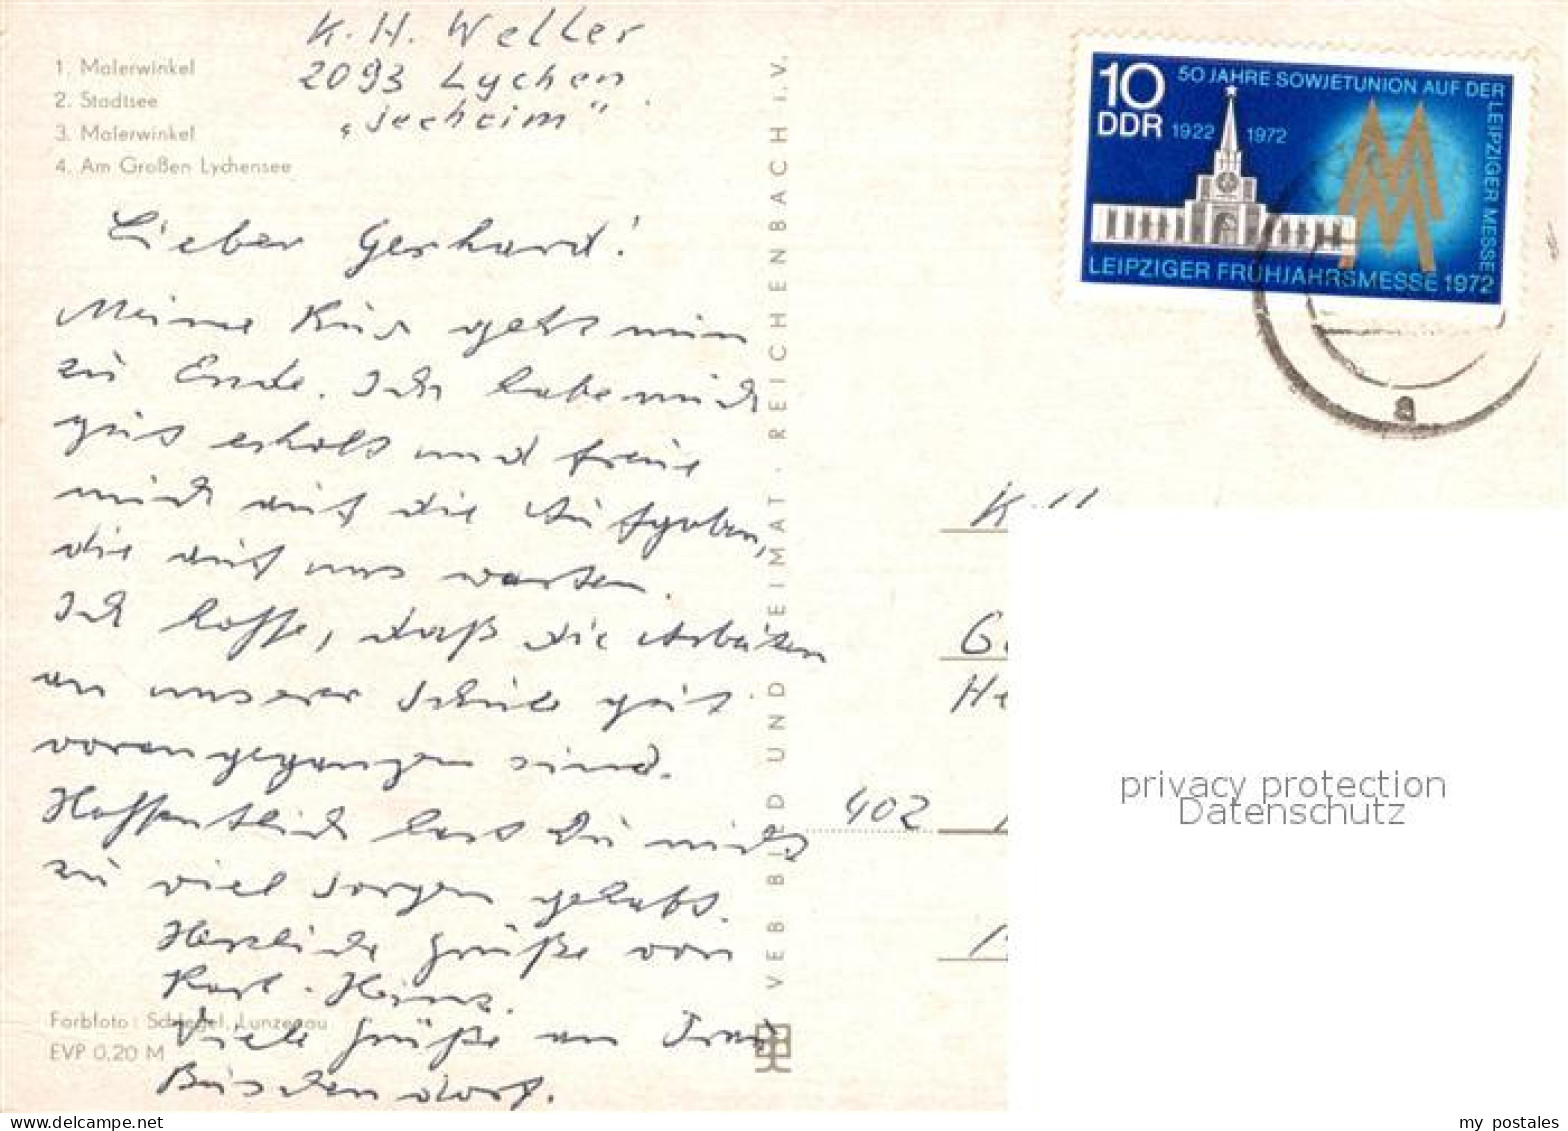 K. H. Weller
2093 Lychen
"Seeheim"
1. Malerwinkel
2. Stadtsee
3. Malerwinkel
4. Am Großen Lychensee
Lieber Gerhard!
Meine Kur geht nun
zu Ende. Ich habe mich
gut erholt und freue
mich auf die Aufgaben,
die auf uns warten.
Ich hoffe, daß die Arbeiten
an unserer Schule gut
vorangegangen sind.
Hoffentlich hast Du nicht
zu viel Sorgen gehabt.
Herzliche Grüße von
Karl-Heinz.
Viele Grüße an Frau
Büschendorf.
Farbfoto: Schlegel, Lunzenau
EVP 0,20 M
VEB BILD UND HEIMAT · REICHENBACH i. V.
10
DDR
50 JAHRE SOWJETUNION AUF DER
LEIPZIGER MESSE
1922 1972
LEIPZIGER FRÜHJAHRSMESSE 1972
a
K. H.
402
privacy protection
Datenschutz
www.delcampe.net
my_postales